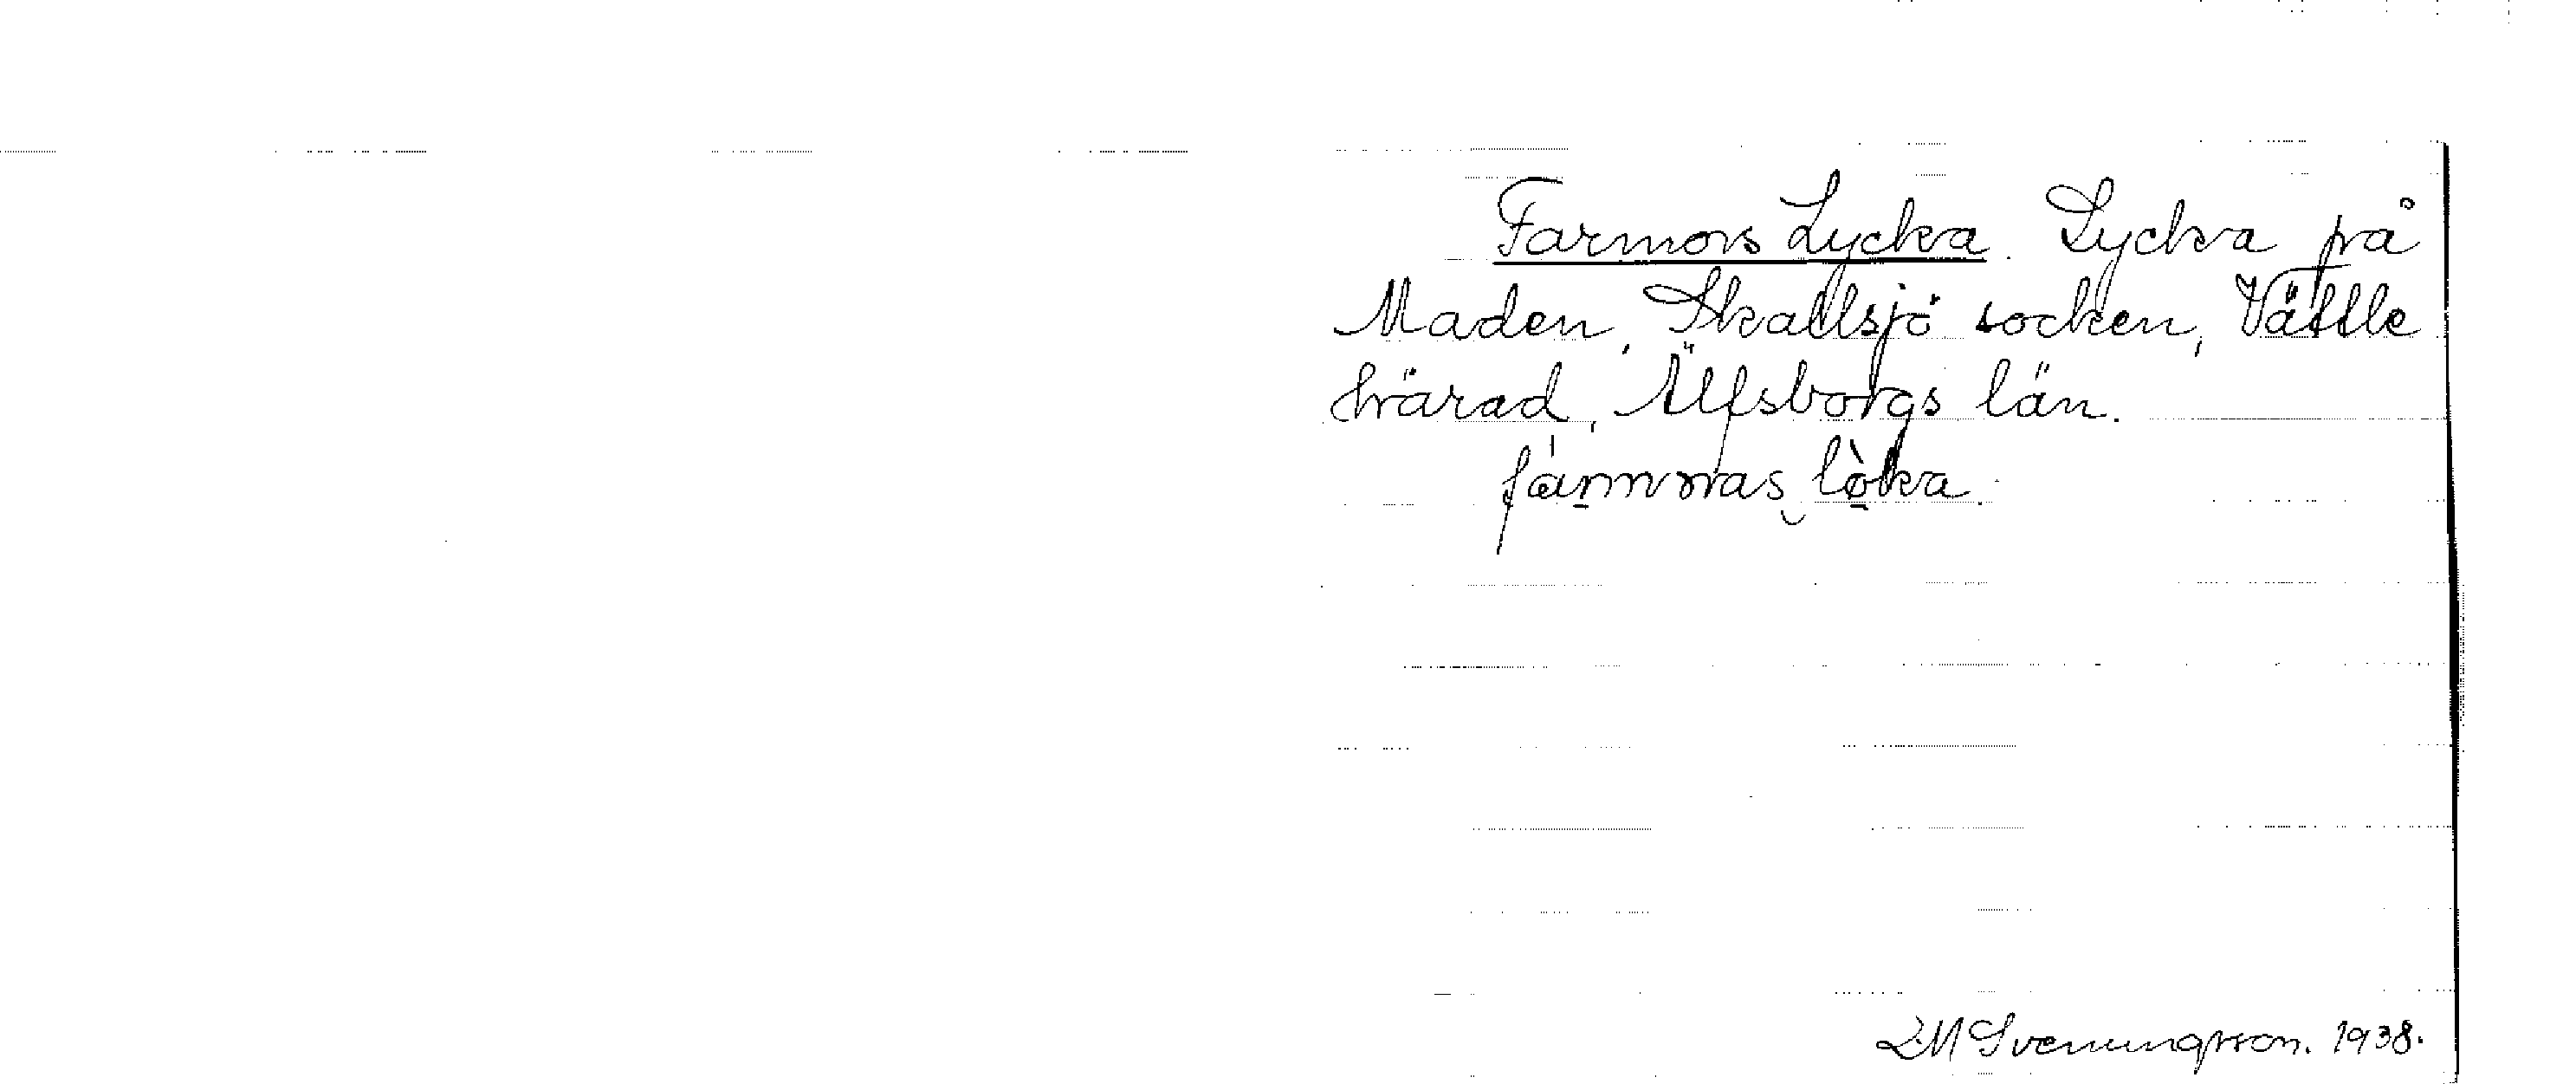 Farmors Lycka. Lycka på
Maden, Skallsjö socken, Vättle
härad, Älfsborgs län.
fármmas lòka.
LM Svenungsson. 1938.